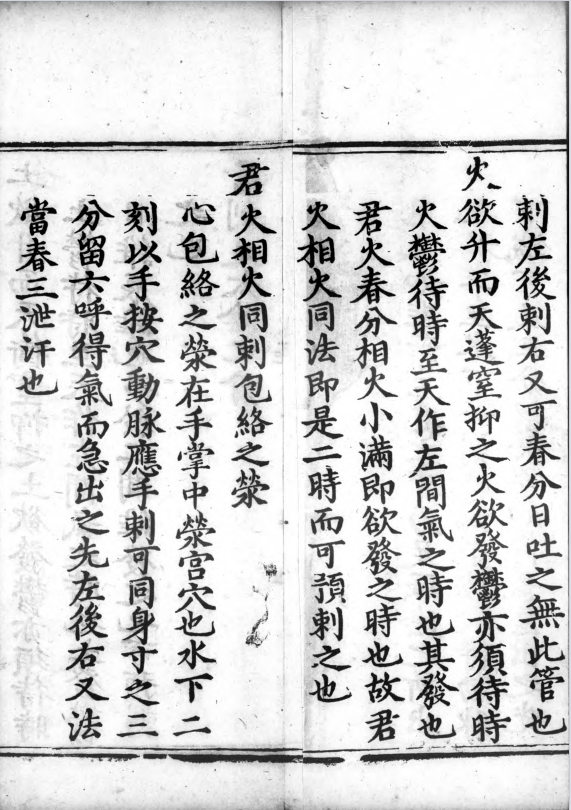 刺左後刺右又可春分日吐之無此管也
火欲升而天蓬窒抑之火欲發鬱亦須待時
火鬱待時至天作左間氣之時也其發也
君火春分相火小滿即欲發之時也故君
火相火同法即是二時而可預刺之也
君火相火同刺包絡之滎
心包絡之滎在手掌中滎宫穴也水下二
刻以手按穴動脉應手刺可同身寸之三
分留六呼得氣而急出之先左後右又法
當春三泄汗也